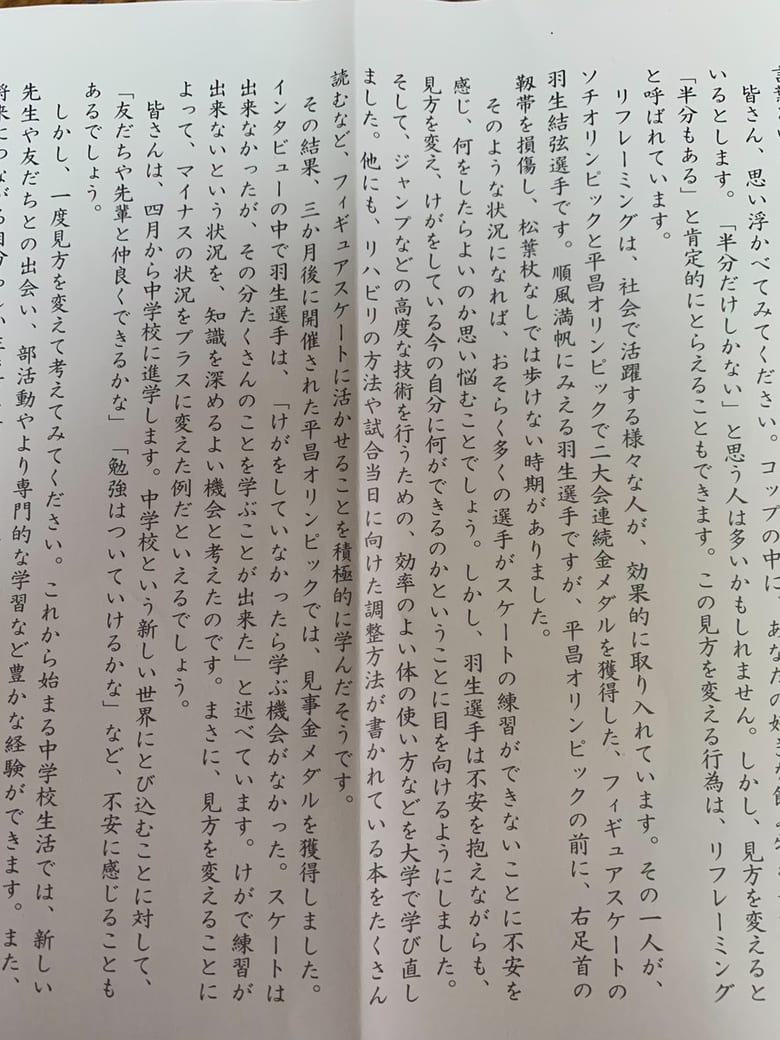 皆さん、思い浮かべてみてください。コップの中に、あなたの好きな飲み物
いるとします。「半分だけしかない」と思う人は多いかもしれません。しかし、見方を変えると
「半分もある」と肯定的にとらえることもできます。この見方を変える行為は、リフレーミング
と呼ばれています。
リフレーミングは、社会で活躍する様々な人が、効果的に取り入れています。その一人が、
ソチオリンピックと平昌オリンピックで二大会連続金メダルを獲得した、フィギュアスケートの
羽生結弦選手です。順風満帆にみえる羽生選手ですが、平昌オリンピックの前に、右足首の
靱帯を損傷し、松葉杖なしでは歩けない時期がありました。
そのような状況になれば、おそらく多くの選手がスケートの練習ができないことに不安を
感じ、何をしたらよいのか思い悩むことでしょう。しかし、羽生選手は不安を抱えながらも、
見方を変え、けがをしている今の自分に何ができるのかということに目を向けるようにしました。
そして、ジャンプなどの高度な技術を行うための、効率のよい体の使い方などを大学で学び直し
ました。他にも、リハビリの方法や試合当日に向けた調整方法が書かれている本をたくさん
読むなど、フィギュアスケートに活かせることを積極的に学んだそうです。
その結果、三か月後に開催された平昌オリンピックでは、見事金メダルを獲得しました。
インタビューの中で羽生選手は、「けがをしていなかったら学ぶ機会がなかった。スケートは
出来なかったが、その分たくさんのことを学ぶことが出来た」と述べています。けがで練習が
出来ないという状況を、知識を深めるよい機会と考えたのです。まさに、見方を変えることに
よって、マイナスの状況をプラスに変えた例だといえるでしょう。
皆さんは、四月から中学校に進学します。中学校という新しい世界にとび込むことに対して、
「友だちや先輩と仲良くできるかな」「勉強はついていけるかな」など、不安に感じることも
あるでしょう。
しかし、一度見方を変えて考えてみてください。これから始まる中学校生活では、新しい
先生や友だちとの出会い、部活動やより専門的な学習など豊かな経験ができます。また、
将来につながる自分らしい